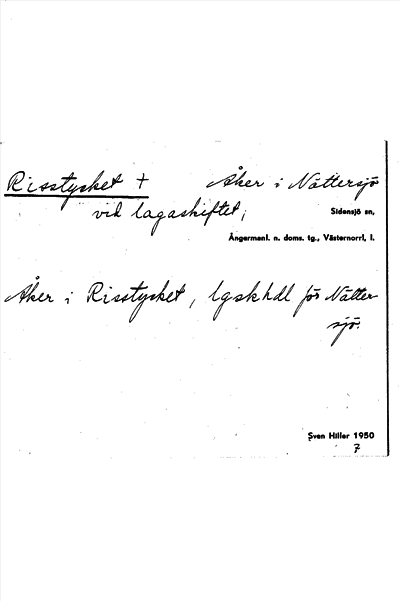 Risstycket + Åker i Nättersjö
vid lagaskiftet; Sidensjö sn,
Ångermanl. n. doms. tg., Västernorrl, l.
Åker i Risstycket, lgskhdl för Nätter-
sjö.
Sven Hiller 1950
7